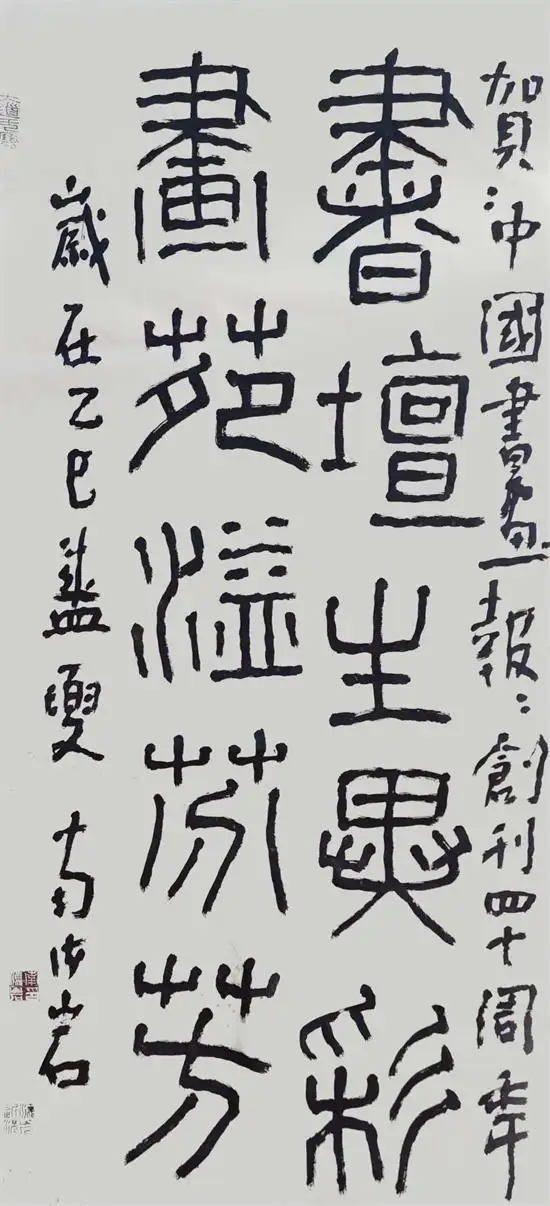 賀：中國書畫報：創刊四十周年
書壇生異彩
畫苑溢芬芳
歲在乙巳盛夏 南海岩